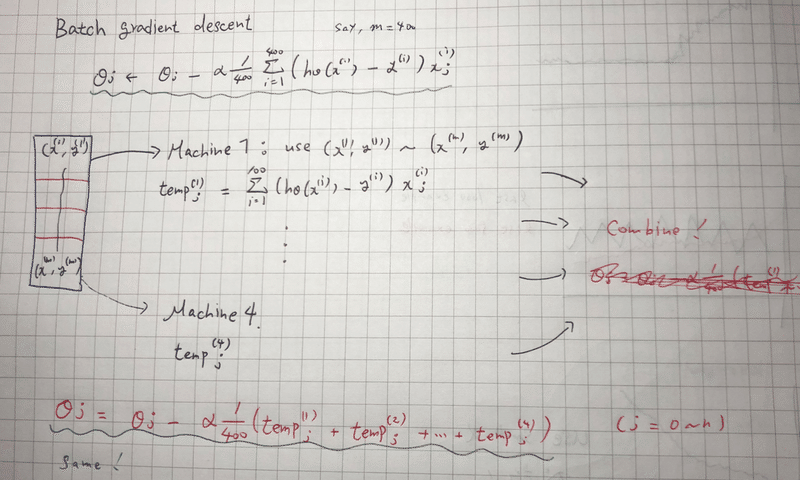 Batch gradient descent say, m = 400
θj ← θj - α 1/400 Σ_{i=1}^{400} (hθ(x^(i)) - y^(i)) x_j^(i)
(x^(1), y^(1))
Machine 1 : use (x^(1), y^(1)) ~ (x^(m), y^(m))
temp_j^(1) = Σ_{i=1}^{100} (hθ(x^(i)) - y^(i)) x_j^(i)
Combine !
(x^(m), y^(m))
Machine 4.
temp_j^(4)
θj = θj - α 1/400 (temp_j^(1) + temp_j^(2) + ... + temp_j^(4)) (j = 0 ~ n)
same !